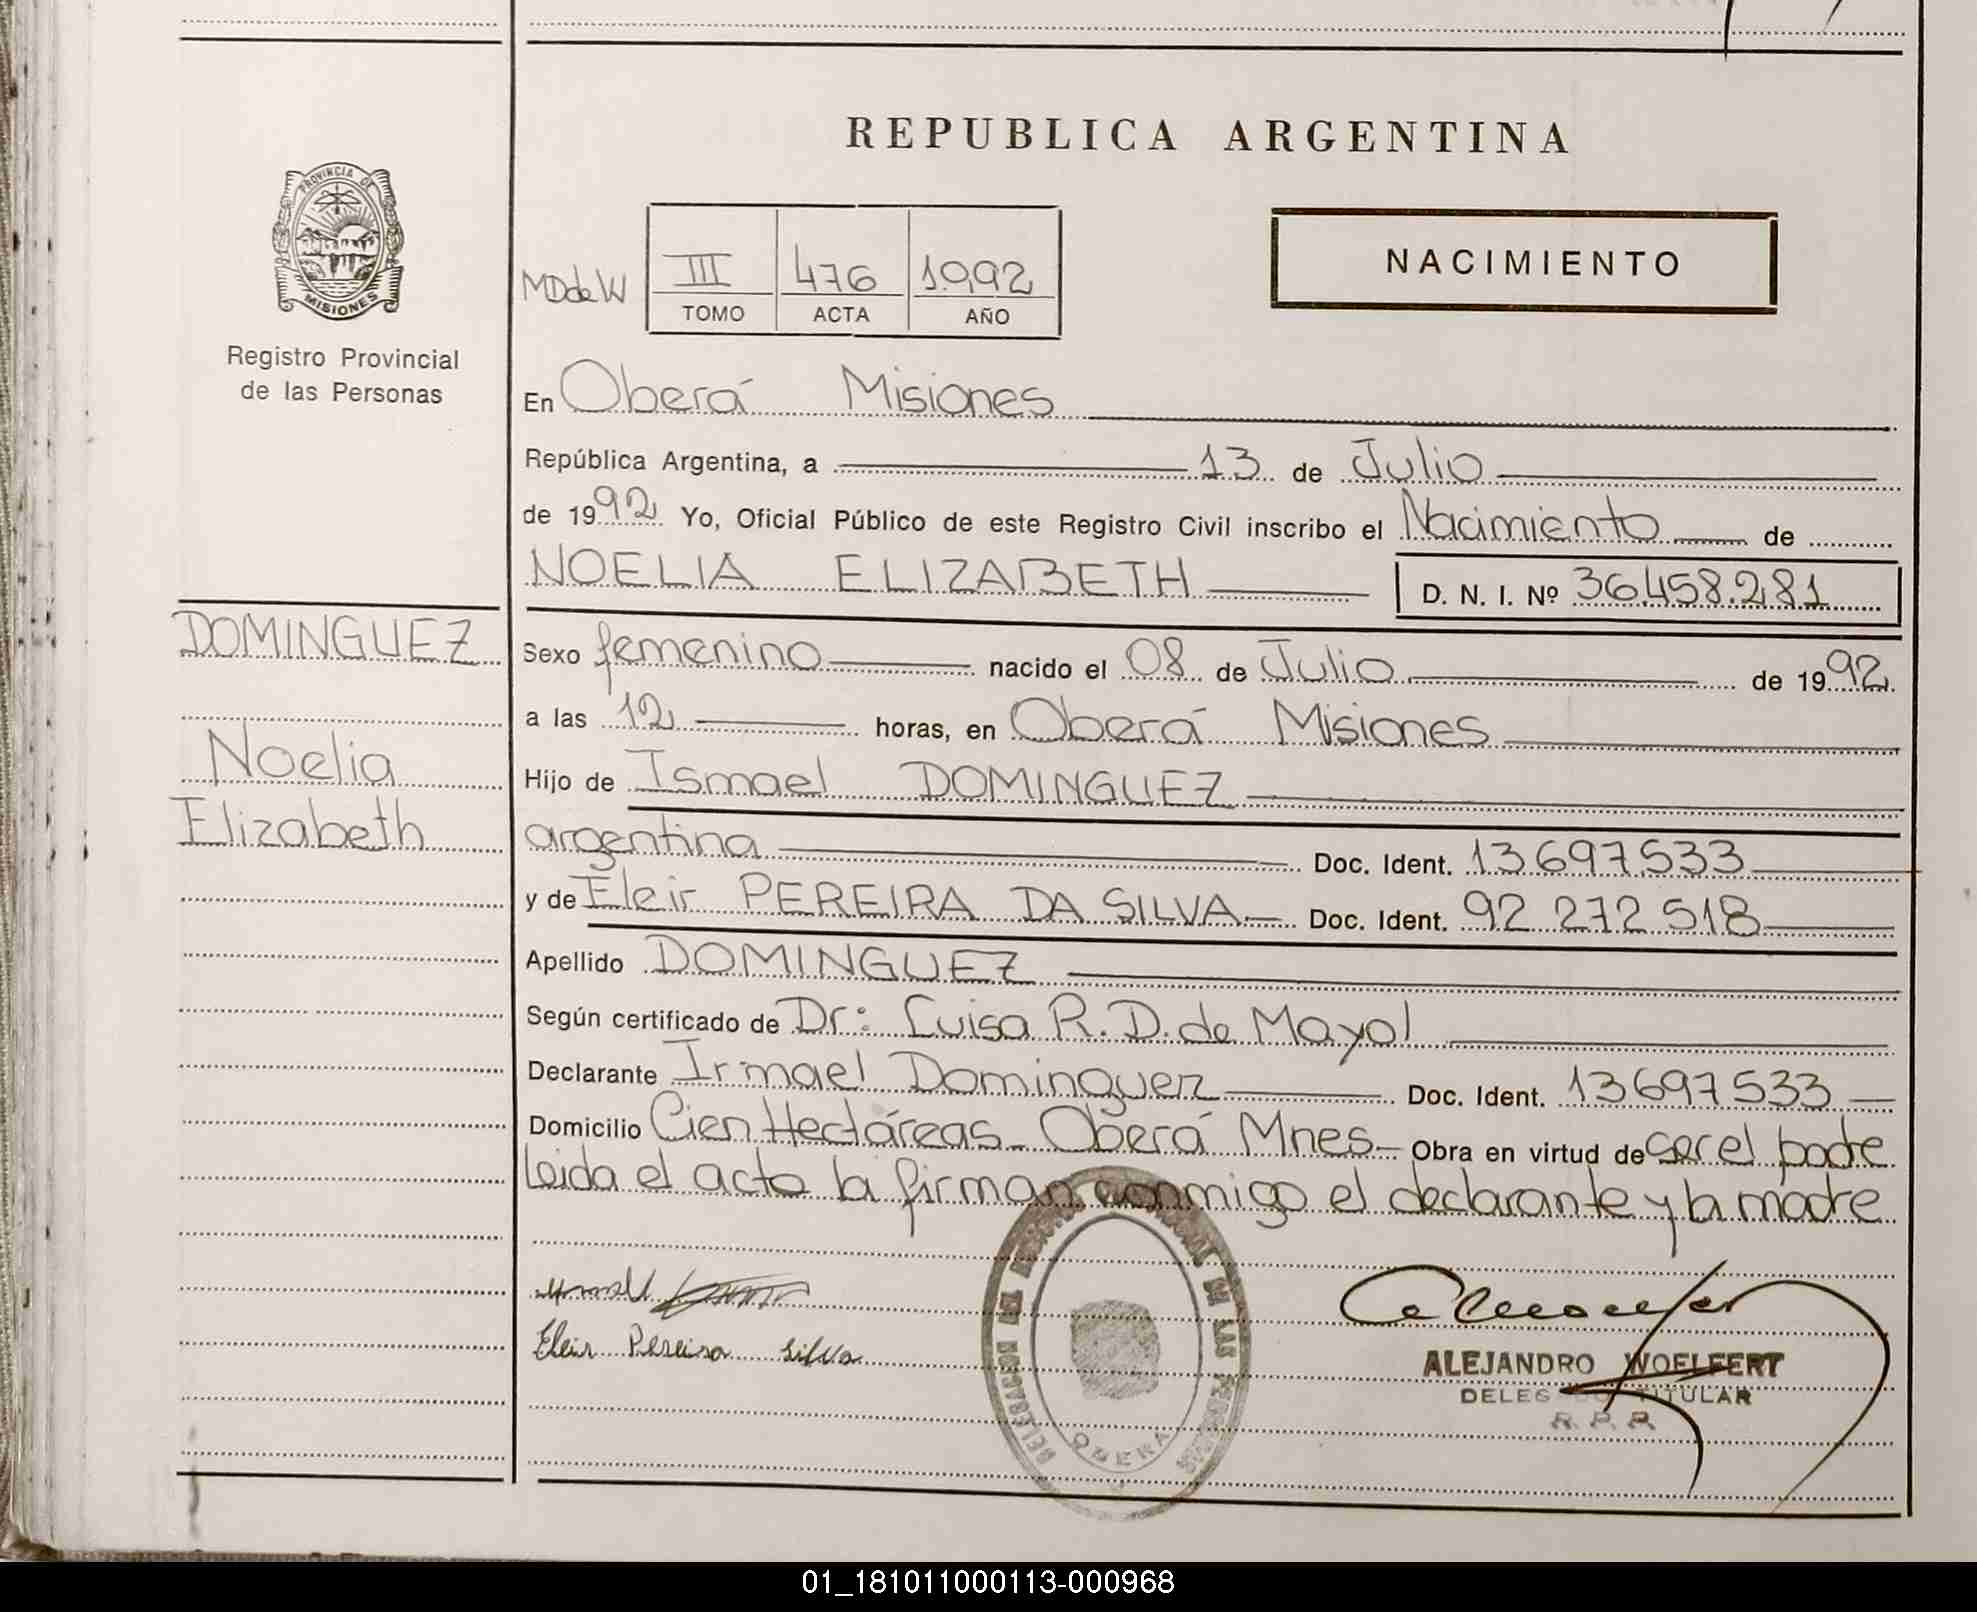 REPUBLICA ARGENTINA
PROVINCIA DE
MISIONES
Registro Provincial
de las Personas
MDdeW
III 476 1992
TOMO ACTA AÑO
NACIMIENTO
En Oberá Misiones
República Argentina, a 13 de Julio
de 1992 Yo, Oficial Público de este Registro Civil inscribo el Nacimiento de
NOELIA ELIZABETH D. N. I. Nº 36.458.281
DOMINGUEZ
Noelia
Elizabeth
Sexo femenino nacido el 08 de Julio de 1992
a las 12 horas, en Oberá Misiones
Hijo de Ismael DOMINGUEZ
argentina Doc. Ident. 13697533
y de Eleir PEREIRA DA SILVA Doc. Ident. 92 272 518
Apellido DOMINGUEZ
Según certificado de Dr: Luisa R. D. de Mayol
Declarante Irmael Dominguez Doc. Ident. 13697533
Domicilio Cien Hectáreas Oberá Mnes Obra en virtud de ser el padre
Leida el acta la firman conmigo el declarante y la madre
Eleir Pereira Silva
DE LAS PERSONAS
OBERA
ALEJANDRO WOELFERT
TITULAR
R. P. P.
01_181011000113-000968